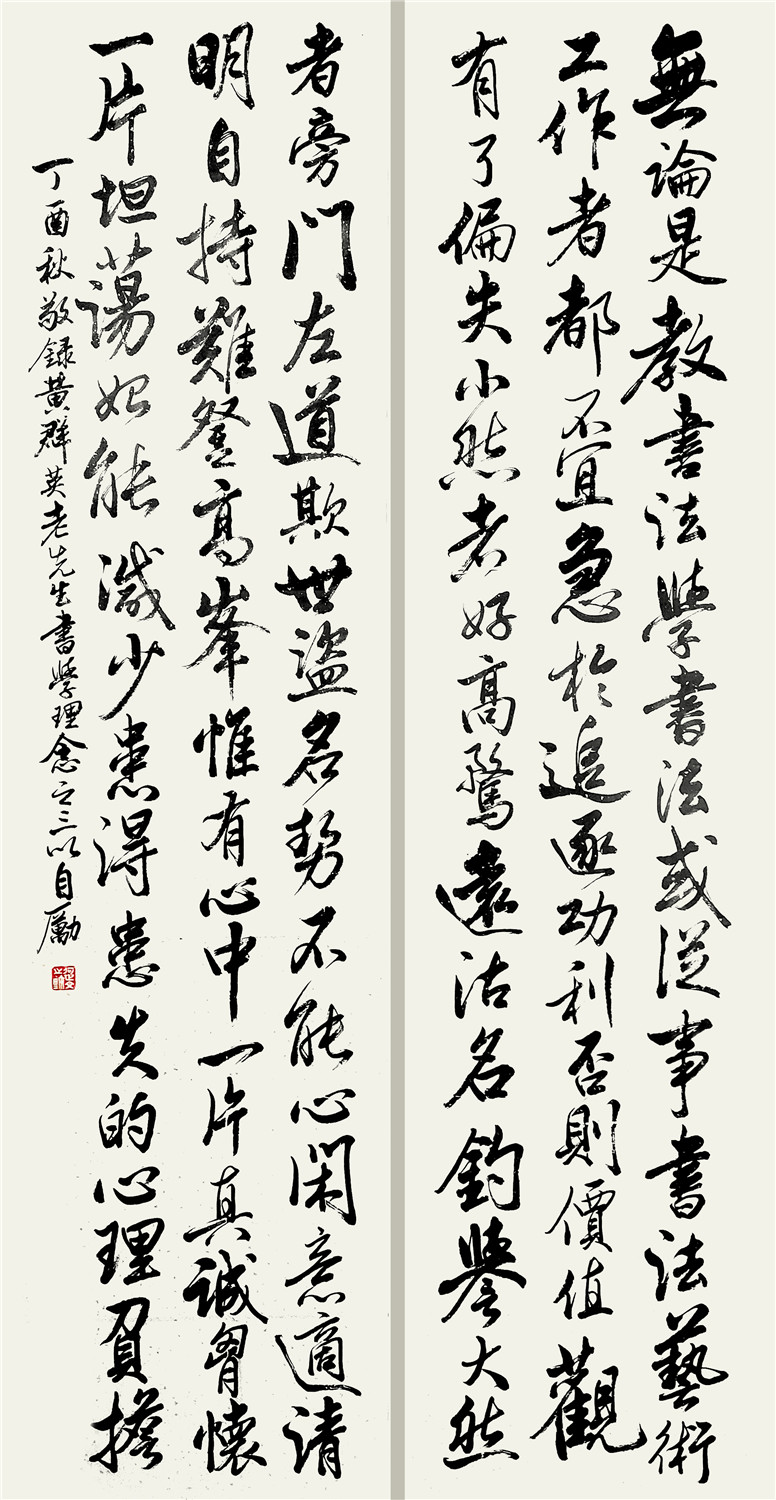 無論是教書法學書法或從事書法藝術
工作者都不宜急於追逐功利否則價值觀
有了偏失小然者好高騖遠沽名釣譽大然
者旁門左道欺世盜名勢不能心閑意適請
明自持難登高峯惟有心中一片真誠胷懷
一片坦蕩始能減少患得患失的心理負擔
丁酉秋敬録黄群英老先生書學理念之三以自勵